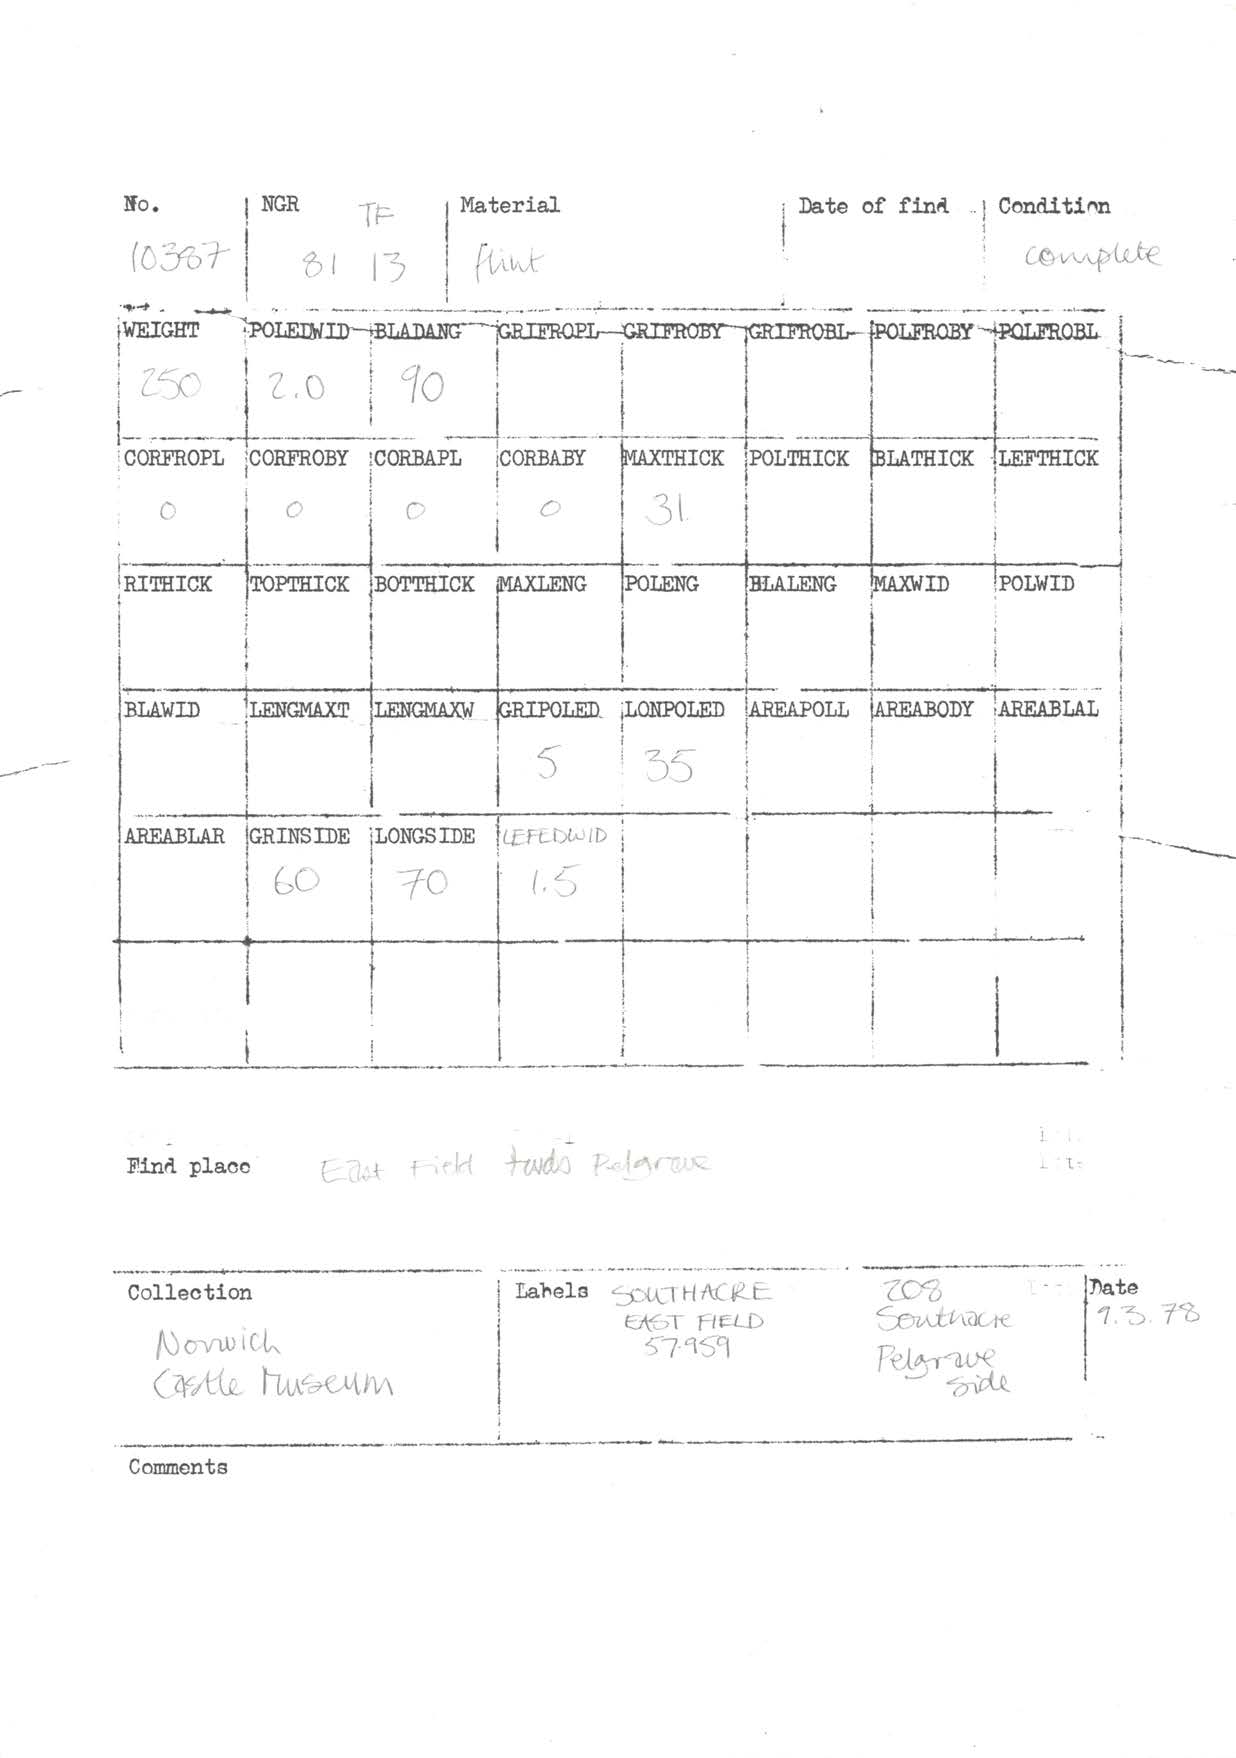 No. NGR TF Material Date of find Condition
10387 81 13 flint complete
WEIGHT POLEDWID BLADANG GRIFROPL GRIFROBY GRIFROBL POLFROBY POLFROBL
250 2.0 90
CORFROPL CORFROBY CORBAPL CORBABY MAXTHICK POLTHICK BLATHICK LEFTHICK
0 0 0 0 31
RITHICK TOPTHICK BOTTHICK MAXLENG POLENG BLALENG MAXWID POLWID
BLAWID LENGMAXT LENGMAXW GRIPOLED LONPOLED AREAPOLL AREABODY AREABLAL
5 35
AREABLAR GRINSIDE LONGSIDE LEFEDWID
60 70 1.5
Find place East Field twds Pelgrave
Collection
Norwich
Castle Museum
Labels SOUTHACRE
EAST FIELD
57.959
208
Southacre
Pelgrave
side
Date
9.3.78
Comments